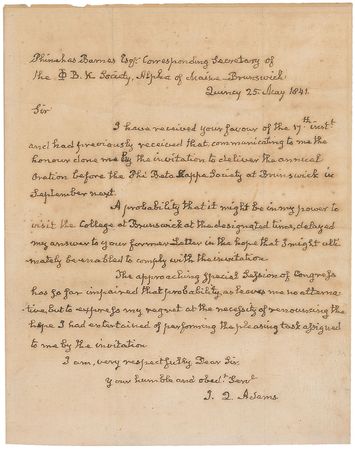 Phinehas Barnes Esqr. Corresponding Secretary of
the Φ B. K Society, Alpha of Maine—Brunswick.
Quincy 25. May 1841.
Sir
I have received your favour of the 17th. instt
and had previously received that communicating to me the
honour done me by the invitation to deliver the annual
Oration before the Phi Beta Kappa Society at Brunswick in
September next.
A probability that it might be in my power to
visit the College at Brunswick at the designated time, delayed
my answer to your former Letter in the hope that I might ulti-
mately be enabled to comply with the invitation.
The approaching Special Session of Congress
has so far impaired that probability, as leaves me no alterna-
tive, but to express my regret at the necessity of renouncing the
hope I had entertained of performing the pleasing task assigned
to me by the invitation
I am, very respectfully Dear Sir.
Your humble and obedt. Servt
J. Q. Adams.